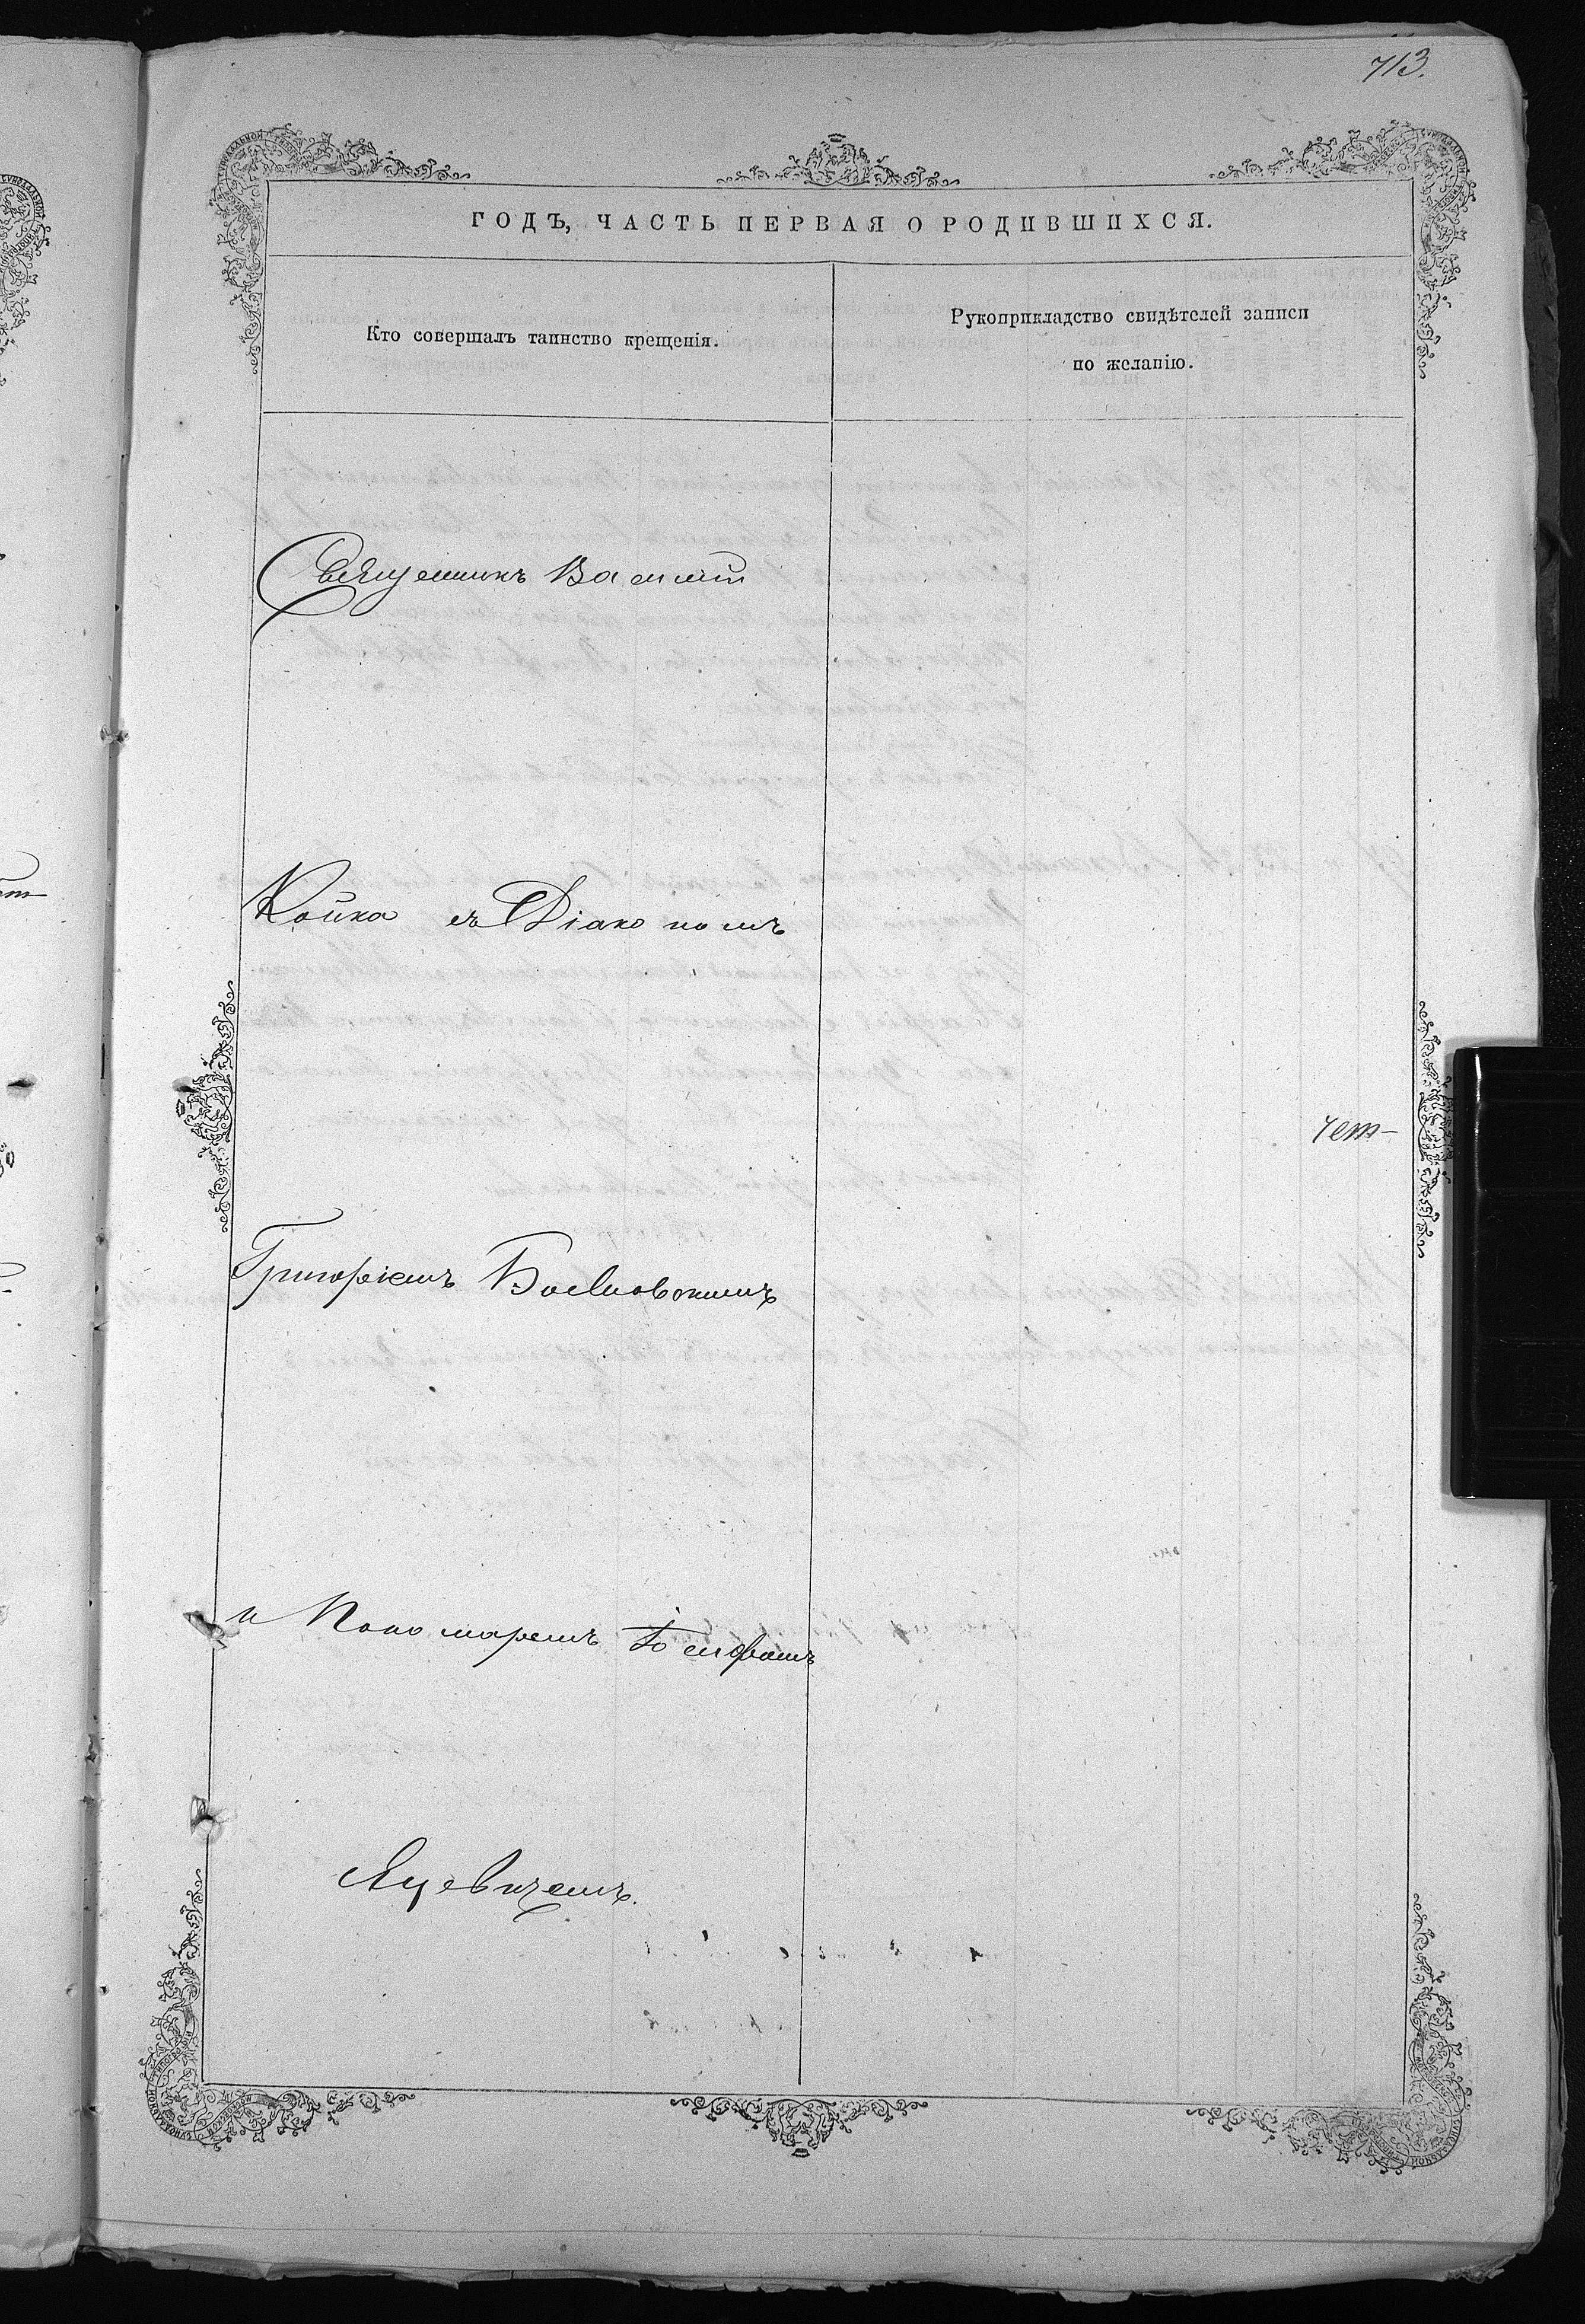 713.
ГОДЪ, ЧАСТЬ ПЕРВАЯ О РОДИВШИХСЯ.
Кто совершалъ таинство крещенія.
Рукоприкладство свидѣтелей записи
по желанію.
Священникъ Василій
Койка съ Діакономъ
чет-
Григоріемъ
и Пономаремъ Іосифомъ
Яцевичемъ.